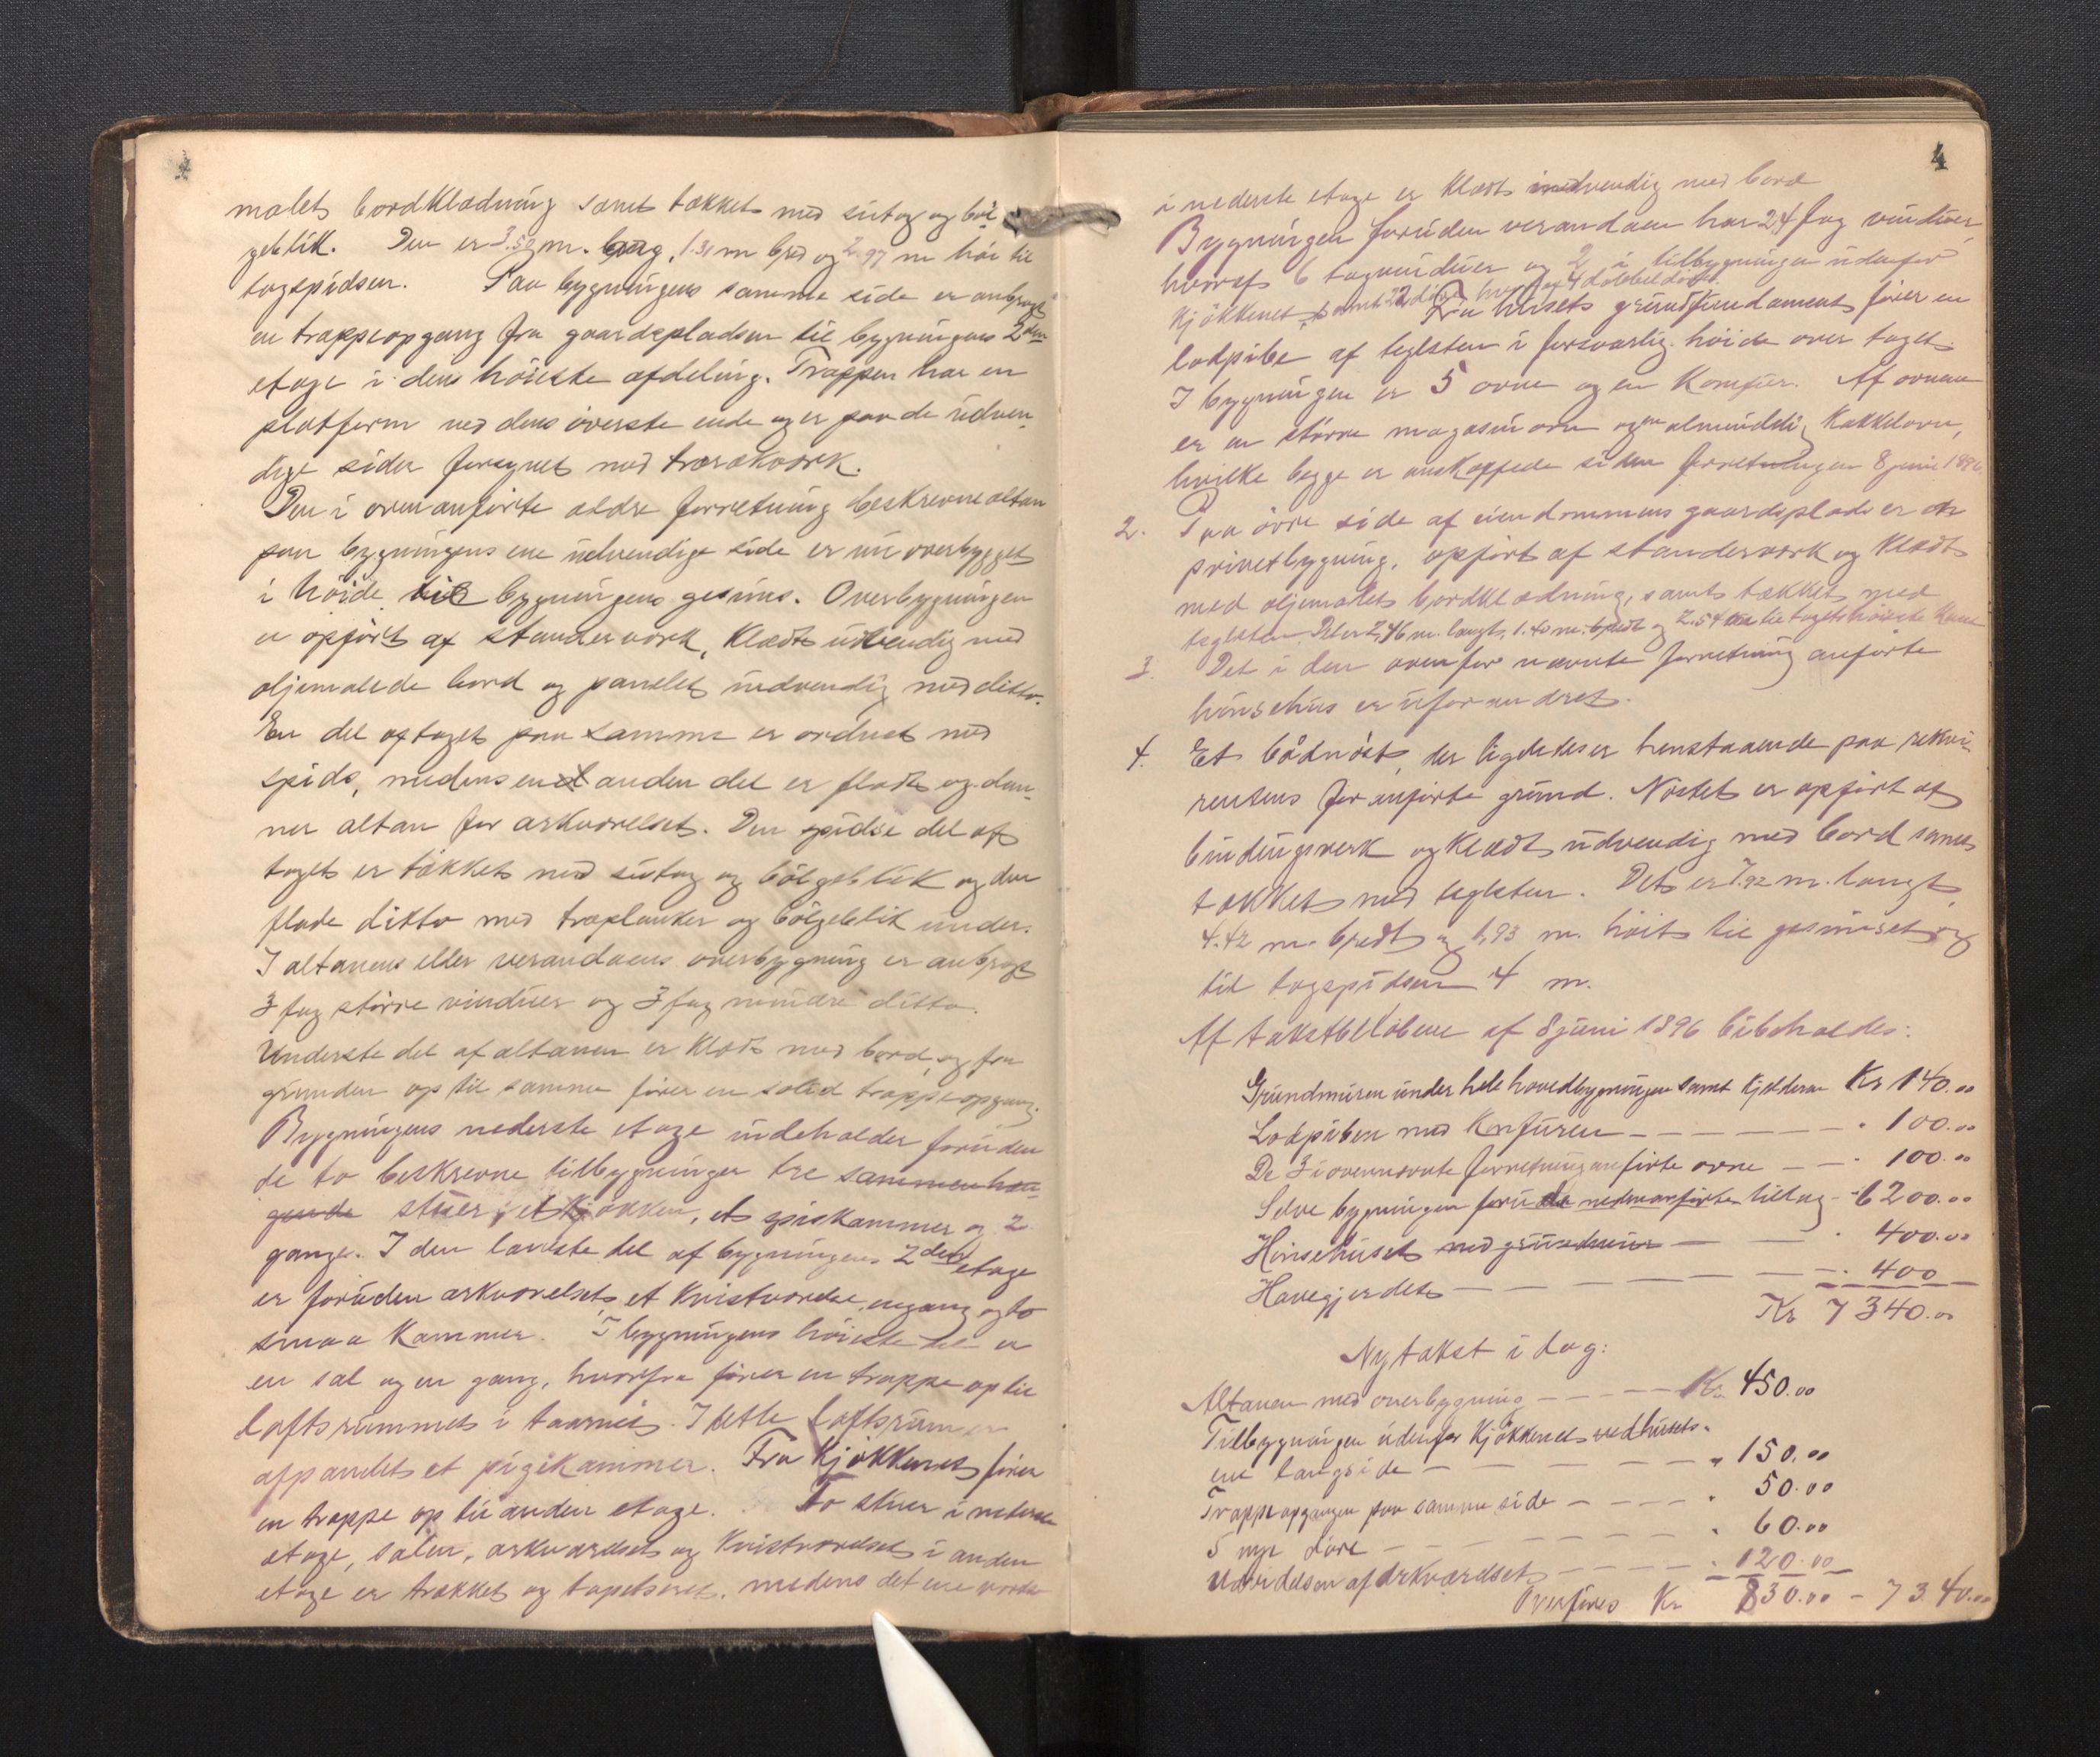 malets bordklædning samt tækket med sutag og böl
geblik. Den er 3.50 m. lang, 1.31 m bred og 2.97 m höi til
tagspidsen. Paa bygningens samme side er anbragt
en trappeopgang fra gaardspladsen til bygningens 2den
etage i dens höieste afdeling. Trappen har en
platform ved dens överste ende og er paa de udven-
dige sider forsynet med trærækværk.
Den i ovenanförte ældre forretning beskrevne altan
paa bygningens ene udvendige side er nu overbygget
i höide til bygningens gesims. Overbygningen
er opfört af standerværk, klædt udvendig med
oljemalede bord og panelet indvendig med ditto.
En del af taget paa samme er ordnet med
spids, medens en anden del er fladt og dan-
ner altan for arkværelset. Den spidse del af
taget er tækket med sutag og bölgeblik og den
flade ditto med træplanker og bölgeblik under.
I altanens eller verandaens overbygning er anbragt
3 fag större vinduer og 3 fag mindre ditto.
Underste del af altanen er klædt med bord, og fra
grunden op til samme förer en solid trappeopgang.
Bygningens nederste etage indeholder foruden
de to beskrevne tilbygninger tre sammenhæn-
gende stuer, et kjökken, et spiskammer og 2
gange. I den laveste del af bygningens 2den etage
er foruden arkværelset et kvistværelse, en gang og to
smaa kammer. I bygningens höieste del er
en sal og en gang, hvorfra förer en trappe op til
loftsrummet i taarnet. I dette loftsrum er
afpanelet et pigekammer. Fra kjökkenet förer
en trappe op til anden etage. To stuer i nederste
etage, salen, arkværelset og kvistværelset i anden
etage er trækket og tapetseret, medens det ene værelse
4
i nederste etage er klædt indvendig med bord
Bygningen foruden verandaen har 24 fag vinduer,
hvoraf 6 tagvinduer og 2 i tilbygningen udenfor
kjökkenet, samt 22 döre, hvoraf 4 dobbelte ditto.
Fra husets grundfundament förer en
lodpibe af teglsten i forsvarlig höide over taget.
I bygningen er 5 ovne og en komfur. Af ovnene
er en större magasinovn og en almindelig kakkelovn,
hvilke begge er anskaffede siden forretningen 8 juni 1896.
2. Paa övre side af eiendommens gaardsplads er en
privetbygning, opfört af standerværk og klædt
med oljemalet bordklædning, samt tækket med
teglsten. Det er 2,46 m. langt, 1.40 m. bredt og 2.54 m til tagets höieste kant
3. Det i den ovenfor nævnte forretning anförte
hönsehus er uforandret.
4. Et bådnöst, der ligeledes er henstaaende paa rekvi-
rentens foranförte grund. Nöstet er opfört af
bindingsverk og klædt udvendig med bord samt
tækket med teglsten. Det er 7.92 m. langt,
4.42 m. bredt og 1,93 m. höit til gesimset og
til tagspidsen 4 m.
Af takstbelöbene af 8 juni 1896 bibeholdes:
Grundmuren under hele hovedbygningen samt kjelderen Kr 140.00
Lodpiben med komfuren — — — " 100.00
De 3 i ovennævnte forretning anförte ovne — — " 100.00
Selve bygningen foruden nedenanförte tillæg - " 6200.00
Hönsehuset med grundmur — — " 400.00
Havegjerdet — — — — — " 400
Kr 7340.00
Ny takst i dag:
Altanen med overbygning — — — Kr. 450.00
Tilbygningen udenfor kjökkenet ved husets
ene langside — — — — " 150.00
Trappeopgangen paa samme side — — — " 50.00
5 nye döre — — — — — " 60.00
Udvidelsen af arkværelset — — — " 120.00
Overföres Kr 830.00 - 7340.00